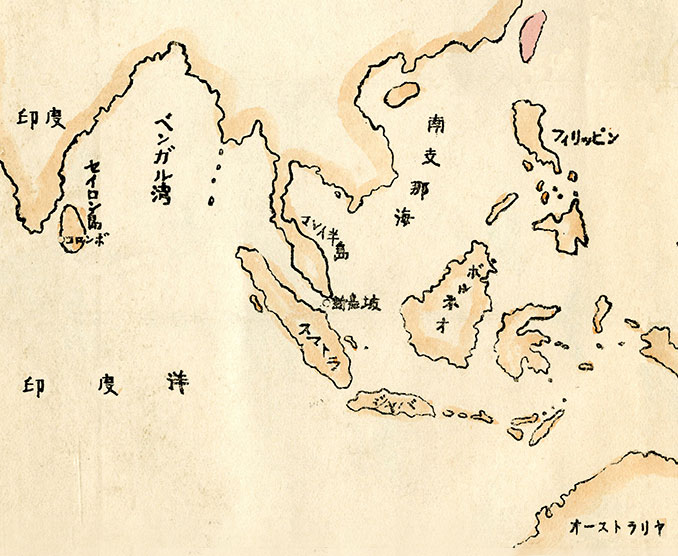 印度
ベンガル湾
セイロン島
コロンボ
南支那海
フィリッピン
マレイ半島
新嘉坡
ボルネオ
スマトラ
ジャバ
印度洋
オーストラリヤ